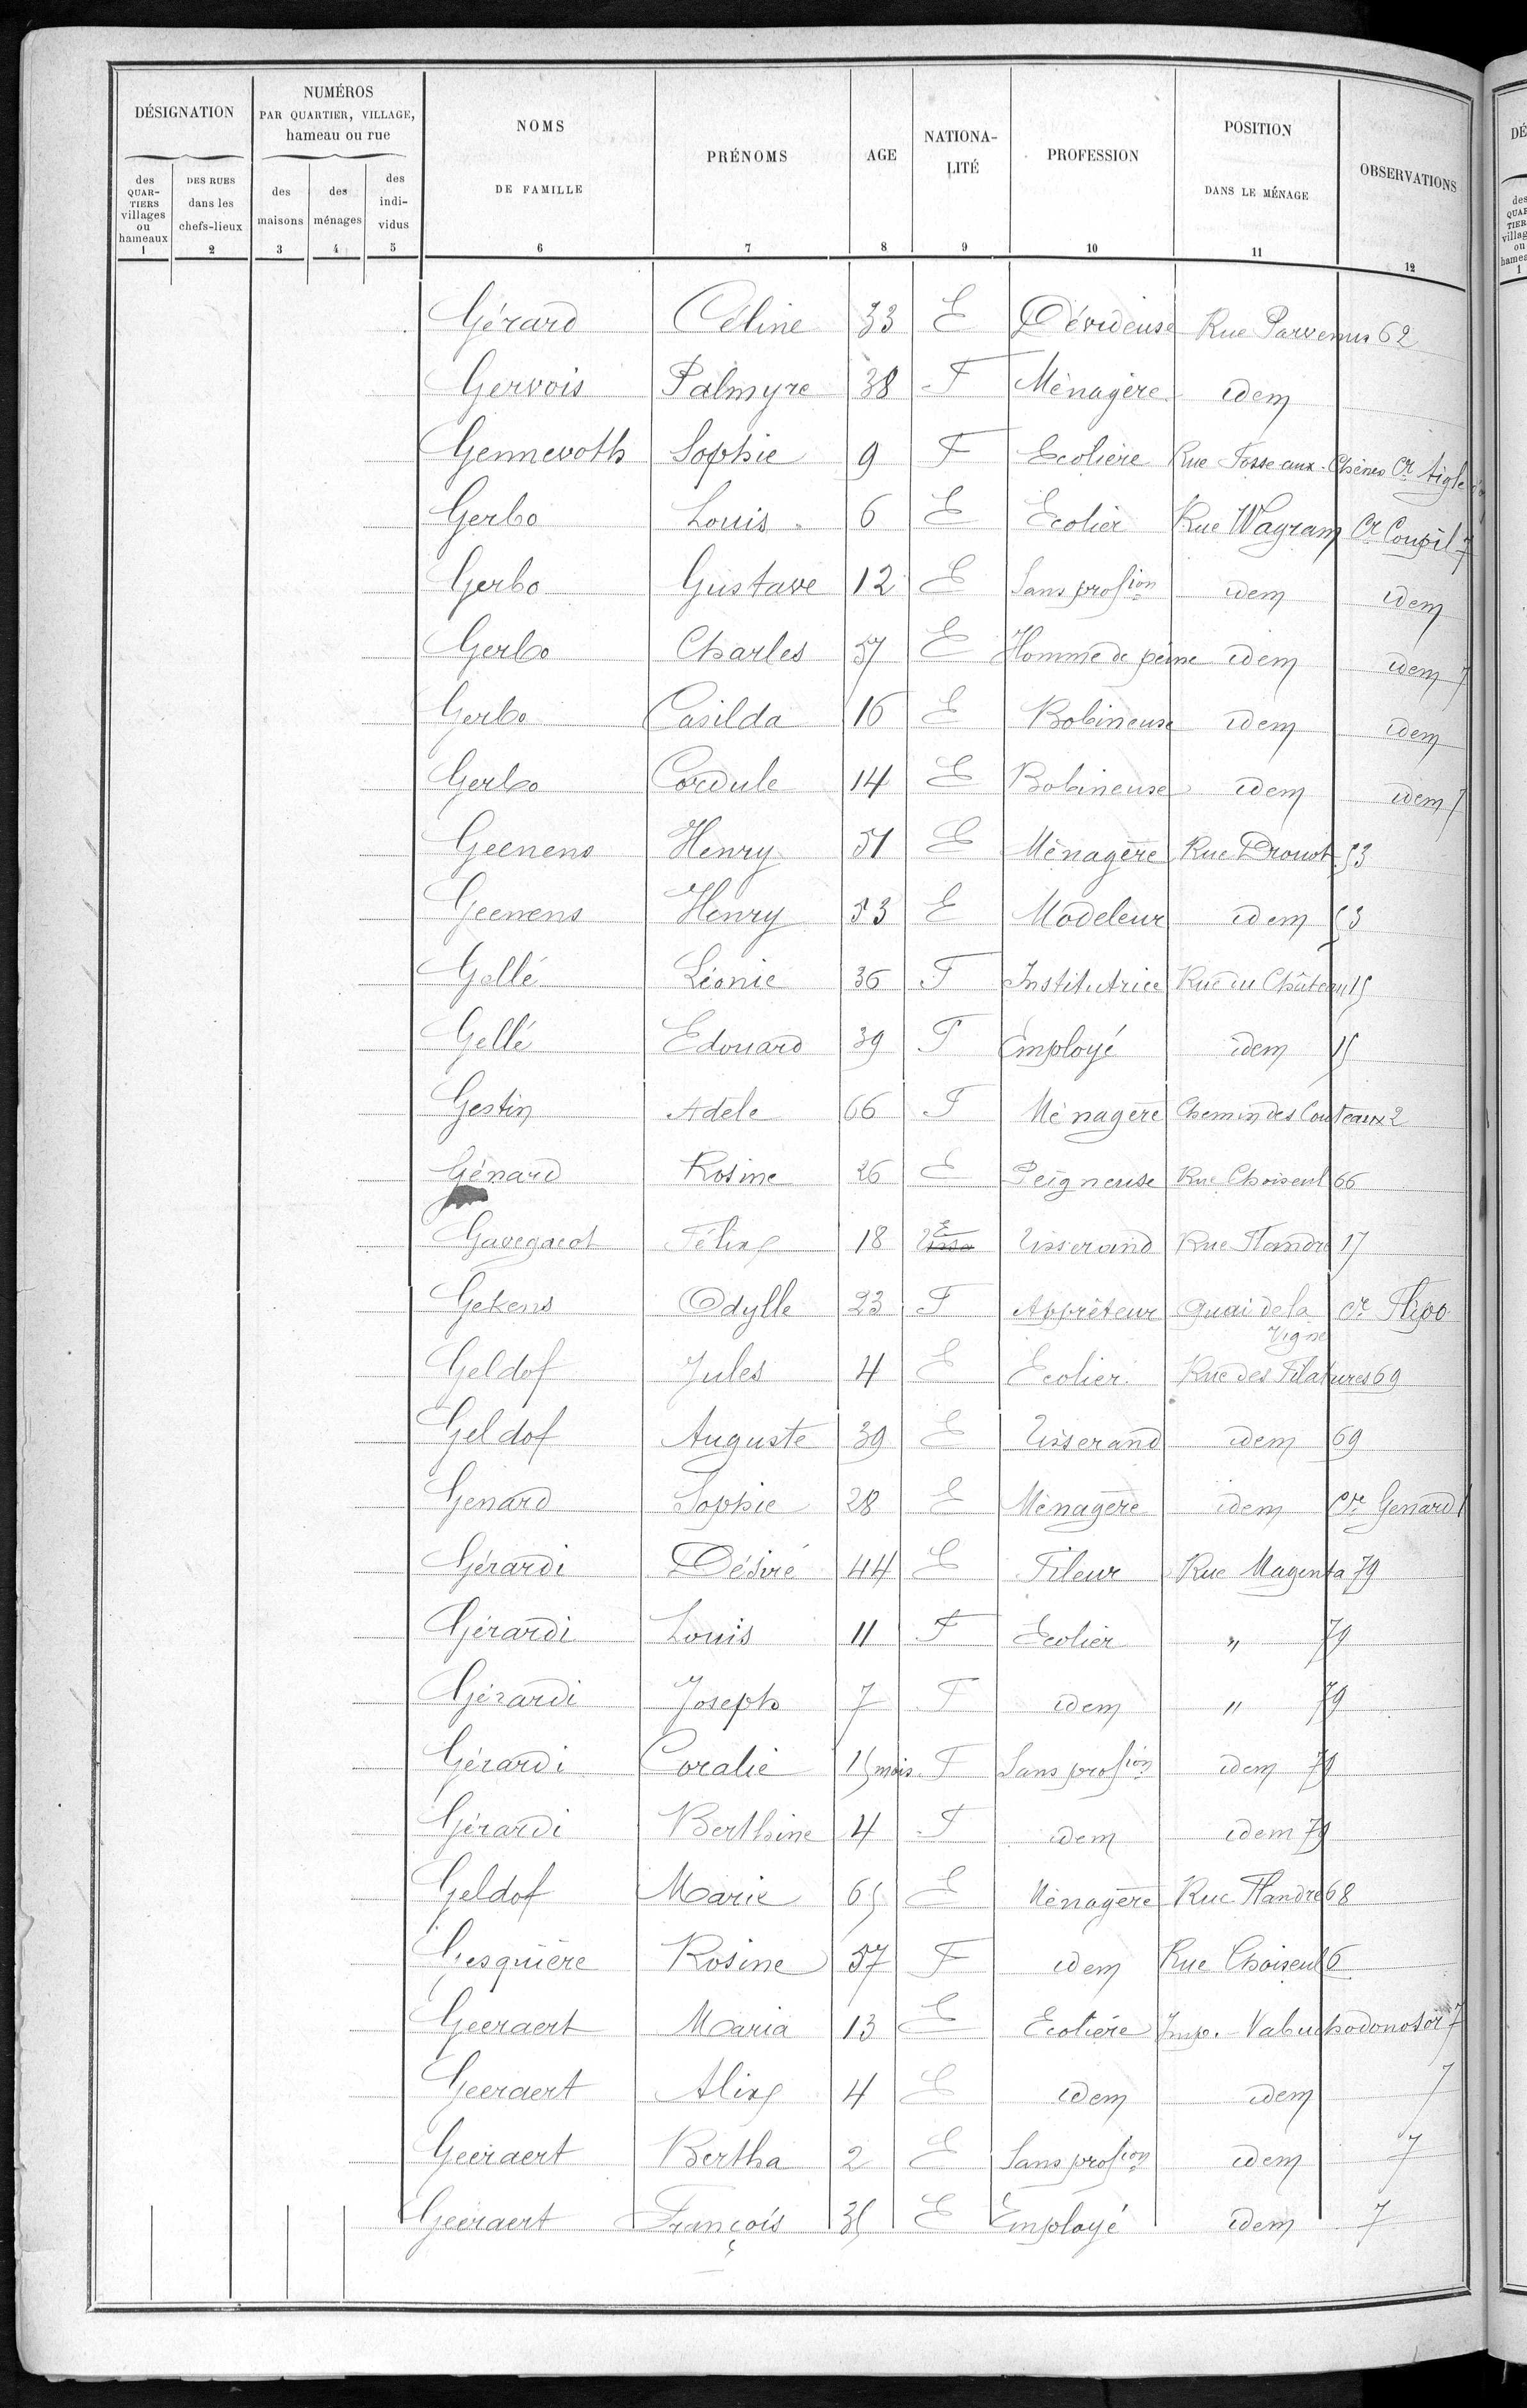 DÉSIGNATION
NUMÉROS PAR QUARTIER, VILLAGE, hameau ou rue
NOMS DE FAMILLE
PRÉNOMS
AGE
NATIONA-LITÉ
PROFESSION
POSITION DANS LE MÉNAGE
OBSERVATIONS
des QUAR-TIERS villages ou hameaux
DES RUES dans les chefs-lieux
des maisons
des ménages
des indi-vidus
1 2 3 4 5 6 7 8 9 10 11 12
Gérard Céline 33 E Dévideuse Rue Parvenus 62
Gervois Palmyre 38 F Ménagère idem
Gennevoth Sophie 9 F Ecolière Rue Fosse aux Chênes Cr Aigle
Gerbo Louis 6 E Ecolier Rue Wagram Cr Coupil 7
Gerbo Gustave 12 E Sans profion idem idem
Gerbo Charles 57 E Homme de peine idem idem 7
Gerbo Casilda 16 E Bobineuse idem idem
Gerbo Cordule 14 E Bobineuse idem idem 7
Geenens Henry 51 E Ménagère Rue Drouot 53
Geenens Henry 53 E Modeleur idem 53
Gellé Léonie 36 F Institutrice Rue du Château 15
Gellé Edouard 39 F Employé idem 15
Gestin Adele 66 F Ménagère Chemin des Couteaux 2
Génard Rosine 26 E Peigneuse Rue Choiseul 66
Gavegacot Félix 18 E Tisserand Rue Flandre 17
Gekens Odylle 23 F Apprêteur Quai de la Vigne Cr Flipo
Geldof Jules 4 E Ecolier Rue des Filatures 69
Geldof Auguste 39 E Tisserand idem 69
Genard Sophie 28 E Ménagère idem Cr Genard 1
Gérardi Désiré 44 E Fileur Rue Magenta 79
Gérardi Louis 11 F Ecolier " 79
Gérardi Joseph 7 F idem " 79
Gérardi Coralie 15 mois F Sans profion idem 79
Gérardi Berthine 4 F idem idem 79
Geldof Marie 65 E Ménagère Rue Flandre 68
Gesquière Rosine 57 F idem Rue Choiseul 6
Geeraert Maria 13 E Ecolière Imp. Nabuchodonosor 7
Geeraert Alix 4 E idem idem 7
Geeraert Bertha 2 E Sans profion idem 7
Geeraert François 35 E Employé idem 7